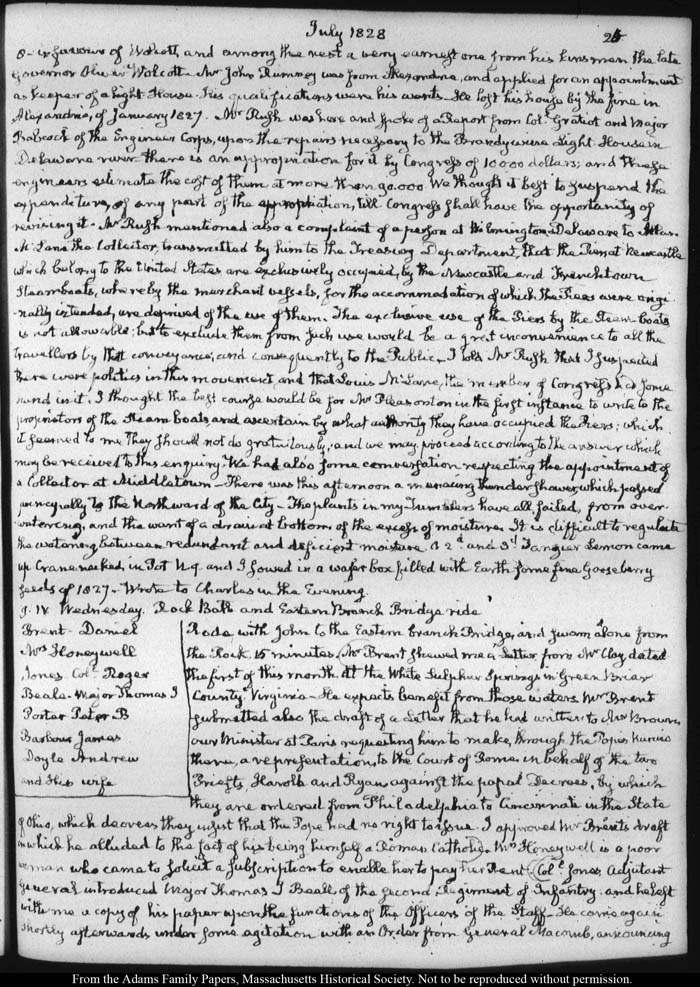 July 1828 25
in favour of Wolcott, and among the rest a very earnest one from his kinsman the late
Governor Oliver Wolcott. Mr John Rumney was from Alexandria, and applied for an appointment
as keeper of a Light House. His qualifications were his wants. He lost his house by the fire in
Alexandria, of January 1827. Mr Rush was here and spoke of a Report from Col. Gratiot and Major
Babcock of the Engineer Corps, upon the repairs necessary to the Brandywine Light House in
Delaware river. there is an appropriation for it by Congress of 10000 dollars; and these
engineers estimate the cost of them at more than 90.000 We thought it best to suspend the
expenditure, of any part of the appropriation, till Congress shall have the opportunity of
revising it. Mr Rush mentioned also a complaint of a person at Wilmington, Delaware to Allan
McLane the Collector, transmitted by him to the Treasury Department, that the Piers at Newcastle
which belong to the United States are exclusively occupied, by the Newcastle and Frenchtown
Steamboats, whereby the merchant vessels, for the accommodation of which the Piers were origi-
nally intended, are deprived of the use of them. The exclusive use of the Piers by the Steam-boats
is not allowable; but to exclude them from such use would be a great inconvenience to all the
travellers by that conveyance, and consequently to the Public. I told Mr Rush that I suspected
there were politics in this movement, and that Louis McLane, the member of Congress had some
hand in it. I thought the best course would be for Mr Pleasonton in the first instance to write to the
proprietors of the Steam boats and ascertain by what authority they have occupied the Piers; which
it seemed to me they should not do gratuitously, and we may proceed according to the answer which
may be received to this enquiry. We had also some conversation respecting the appointment of
a Collector at Middletown. There was this afternoon a menacing thunder shower, which passed
principally to the Northward of the City. The plants in my Tumblers have all failed, from over-
watering, and the want of a drain at bottom of the excess of moisture. It is difficult to regulate
the watering between redundant and deficient moisture. A 2d and 3d Tangier Lemon came
up Crane necked, in Pot N. 9. and I sowed in a wafer box filled with Earth some fine Gooseberry
seeds of 1827. Wrote to Charles in the Evening.
9. IV. Wednesday. Rock Bath and Eastern Branch Bridge ride
Brent. Daniel
Mrs Honeywell
Jones Col. Roger
Beale. Major Thomas J
Porter Peter B
Barbour James
Doyle Andrew
and His wife
Rode with John to the Eastern branch Bridge, and swam alone from
the Rock 15 minutes. Mr Brent shewed me a Letter from Mr Clay, dated
the first of this month. At the White Sulphur Springs in Green Briar
County Virginia. He expects benefit from those waters Mr Brent
submitted also the draft of a Letter that he had written to Mr Brown,
our Minister at Paris requesting him to make, through the Pope's Nuncio
there, a representation, to the Court of Rome in behalf of the two
Priests, Harold and Ryan, against the papal Decrees, by which
they are ordered from Philadelphia to Cincinnati in the State
of Ohio, which decrees they insist that the Pope had no right to issue. I approved Mr Brent's draft
in which he alluded to the fact of his being himself a Roman Catholic. Mrs Honeywell is a poor
woman who came to solicit a subscription to enable her to pay her Rent. Col. Jones, Adjutant
General introduced Major Thomas J Beall of the second Regiment of Infantry. and he left
with me a copy of his paper upon the functions of the Officers of the Staff. He came again
shortly afterwards under some agitation with an Order from General Macomb, announcing
From the Adams Family Papers, Massachusetts Historical Society. Not to be reproduced without permission.